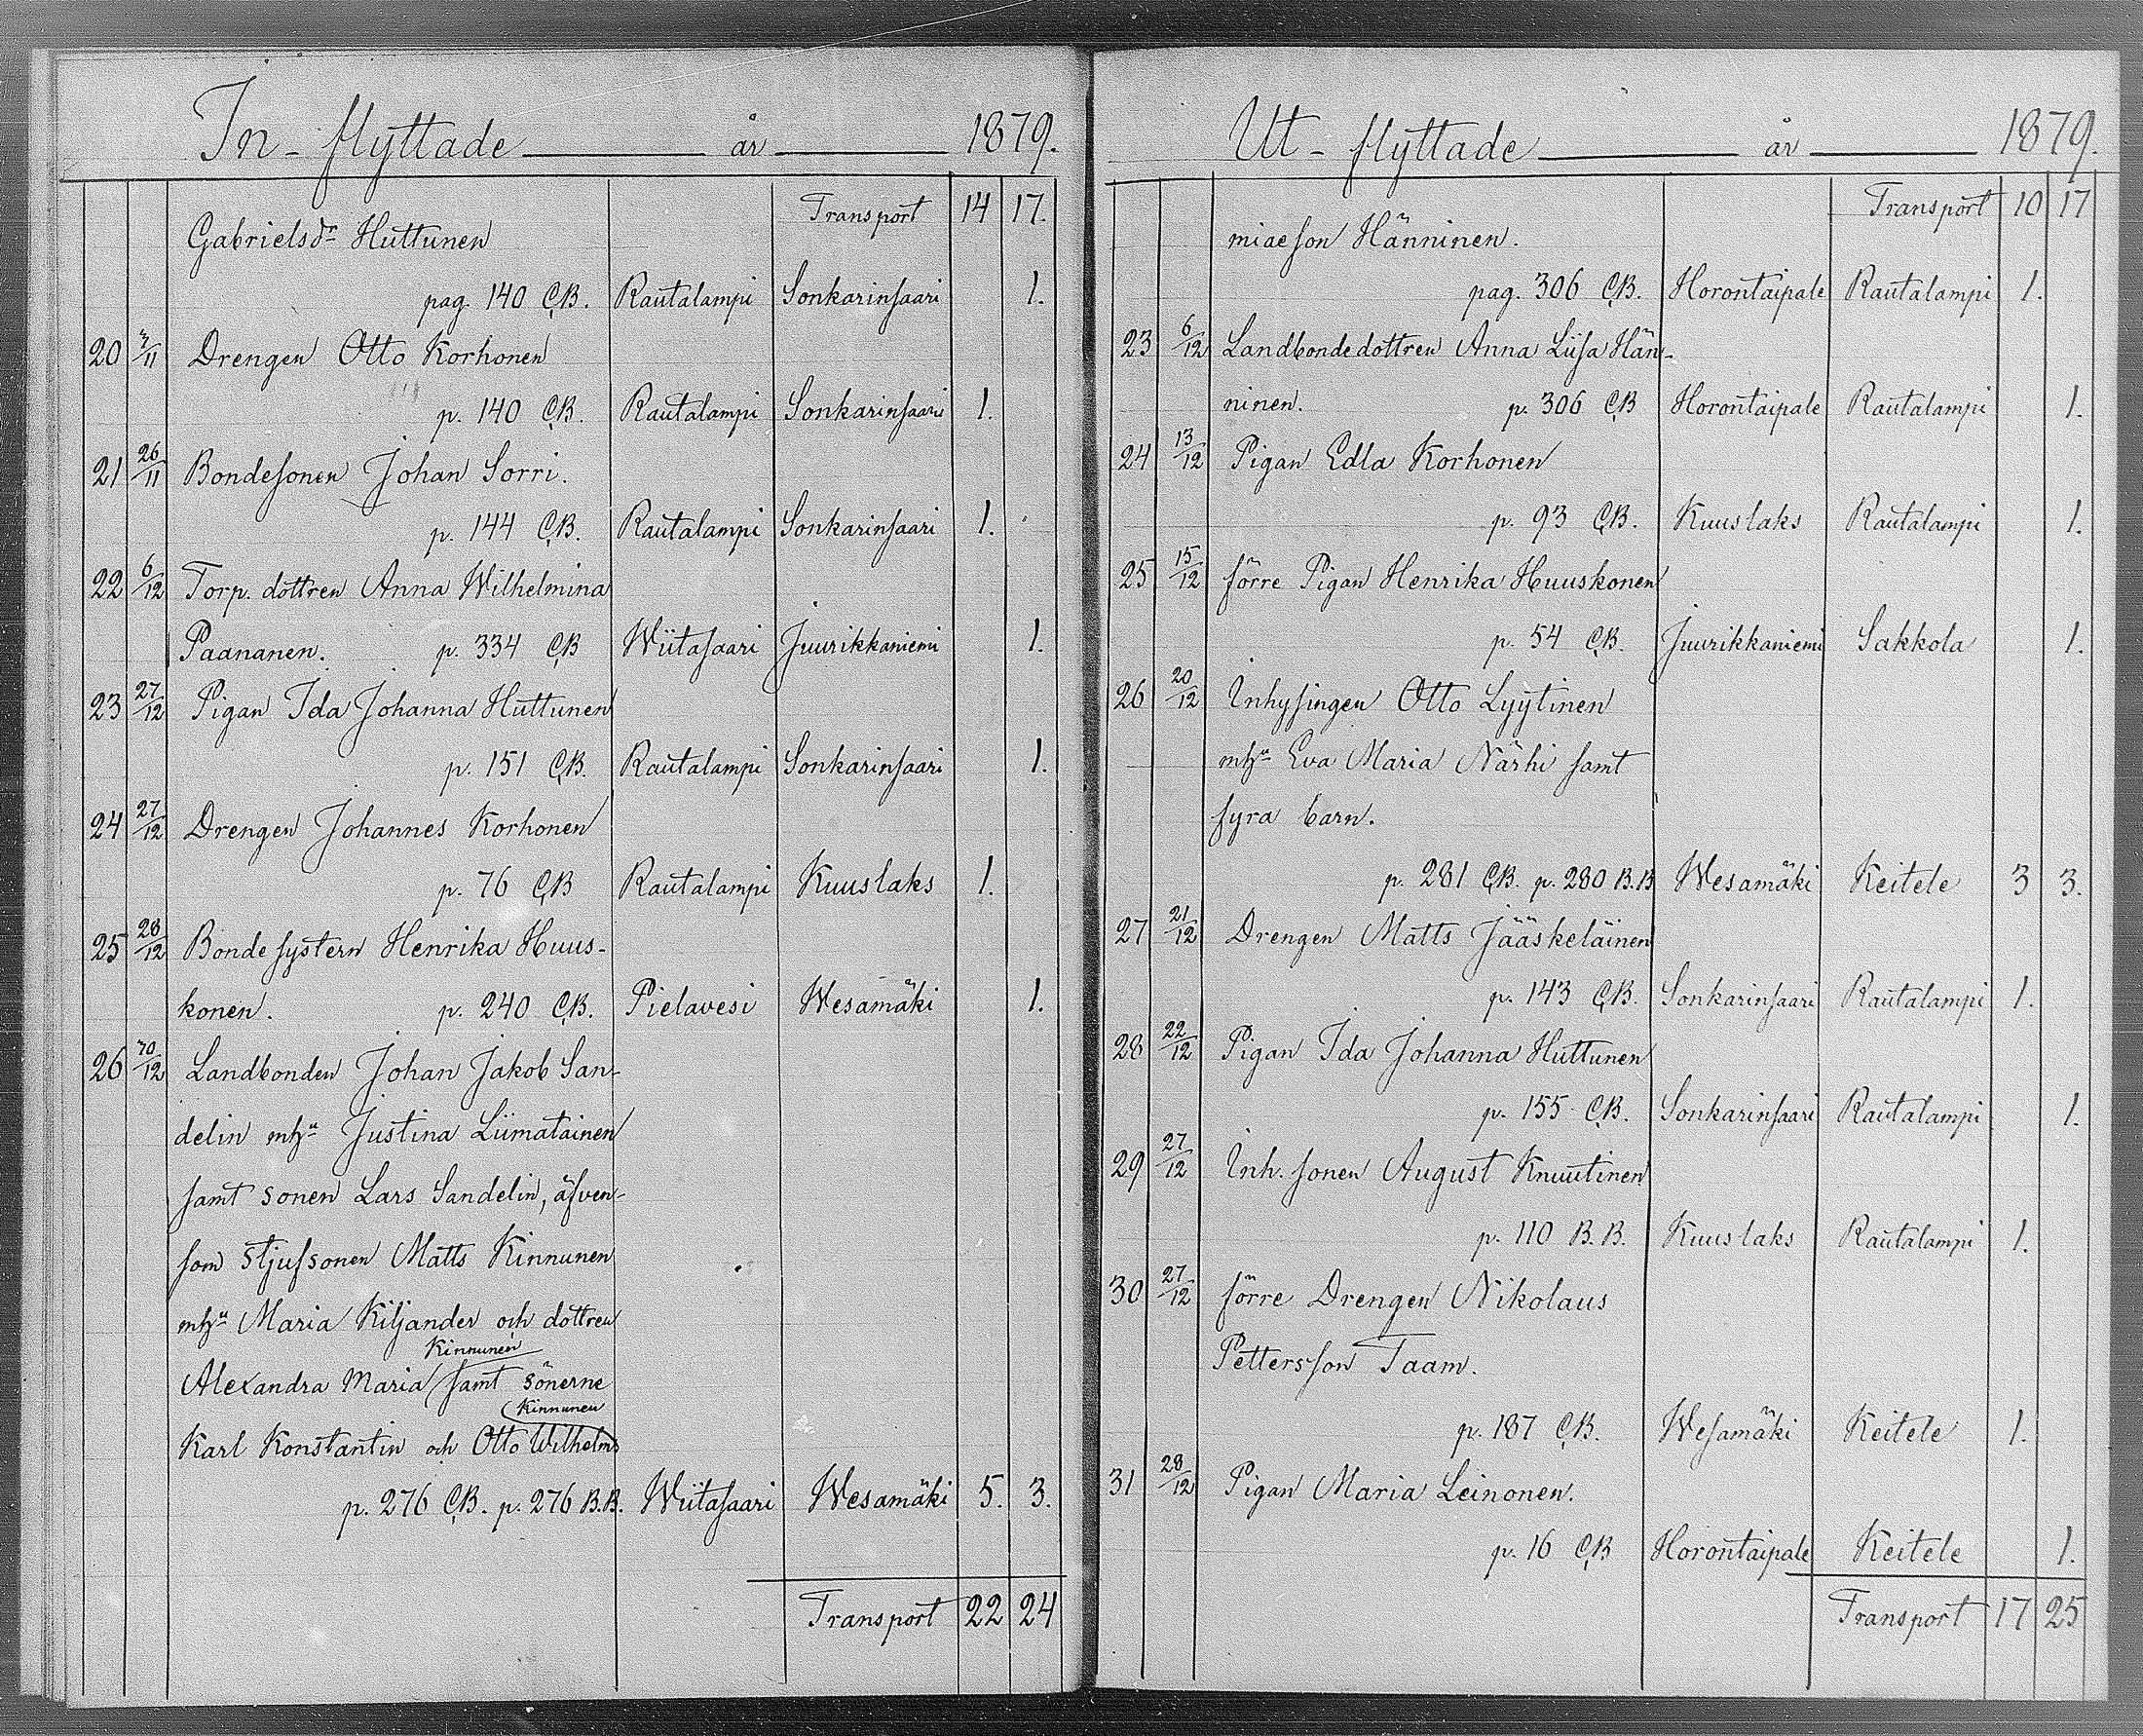 In-flyttade år 1879.
Transport 14 17.
Gabrielsdr Huttunen
pag. 140 C.B. Rautalampi Sonkarinsaari 1.
20 7/11 Drengen Otto Korhonen
p. 140 C.B. Rautalampi Sonkarinsaari 1.
21 26/11 Bondesonen Johan Sorri.
p. 144 C.B. Rautalampi Sonkarinsaari 1.
22 6/12 Torp. dottren Anna Wilhelmina
Paananen. p. 334 C.B. Wiitasaari Juurikkaniemi 1.
23 27/12 Pigan Ida Johanna Huttunen
p. 151 C.B. Rautalampi Sonkarinsaari 1.
24 27/12 Drengen Johannes Korhonen
p. 76 C.B. Rautalampi Kuuslaks 1.
25 28/12 Bondesystern Henrika Huus-
konen. p. 240 C.B. Pielavesi Wesamäki 1.
26 /12 Landbonden Johan Jakob San-
delin mhu Justina Liimatainen
samt sonen Lars Sandelin, äfven-
som stjufsonen Matts Kinnunen
mhu Maria Kiljander och dottren
Kinnunen
Alexandra Maria samt sönerne
Kinnunen
Karl Konstantin och Otto Wilhelm
p. 276 C.B. p. 276 B.B. Wiitasaari Wesamäki 5. 3.
Transport 22 24
Ut-flyttade år 1879.
Transport 10 17
miaeson Hänninen.
pag. 306 C.B. Horontaipale Rautalampi 1.
23 6/12 Landbondedottren Anna Liisa Hän-
ninen. p. 306 C.B. Horontaipale Rautalampi 1.
24 13/12 Pigan Edla Korhonen
p. 93 C.B. Kuuslaks Rautalampi 1.
25 15/12 förre Pigan Henrika Huuskonen
p. 54 C.B. Juurikkaniemi Sakkola 1.
26 20/12 Inhysingen Otto Lyytinen
mhu Eva Maria Närhi samt
fyra barn.
p. 281 C.B. p. 280 B.B. Wesamäki Keitele 3 3.
27 21/12 Drengen Matts Jääskeläinen
p. 143 C.B. Sonkarinsaari Rautalampi 1.
28 22/12 Pigan Ida Johanna Huttunen
p. 155 C.B. Sonkarinsaari Rautalampi 1.
29 27/12 Inh. sonen August Knuutinen
p. 110 B.B. Kuuslaks Rautalampi 1.
30 27/12 förre Drengen Nikolaus
Pettersson Taam.
p. 187 C.B. Wesamäki Keitele 1.
31 28/12 Pigan Maria Leinonen.
p. 16 C.B. Horontaipale Keitele 1.
Transport 17 25